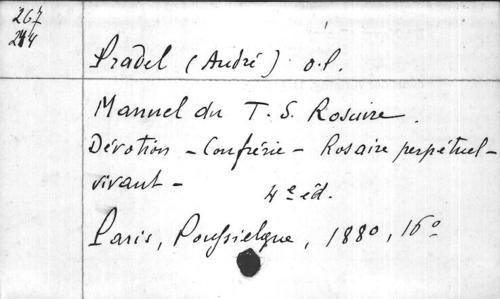 267
214
Pradel (André) o.p.
Manuel du T. S. Rosaire.
Dévotion - Confrérie - Rosaire perpétuel -
vivant - 4e éd.
Paris, Poussielgue, 1880, 16°